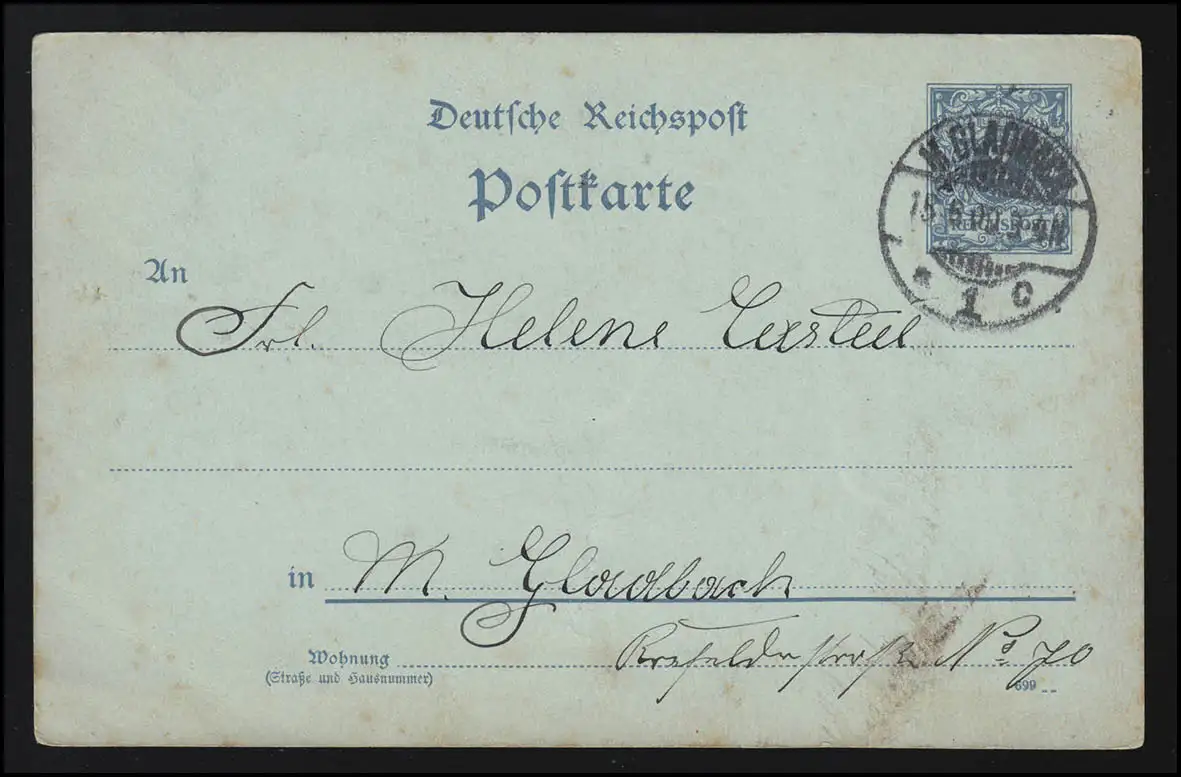 Deutsche Reichspost
Postkarte
M. GLADBACH
15.6.00.
REICHSPOST
* 1 c
An
Frl. Helene Casteel
in M. Gladbach
Wohnung
(Straße und Hausnummer)
Krefelderstraße No 70
699